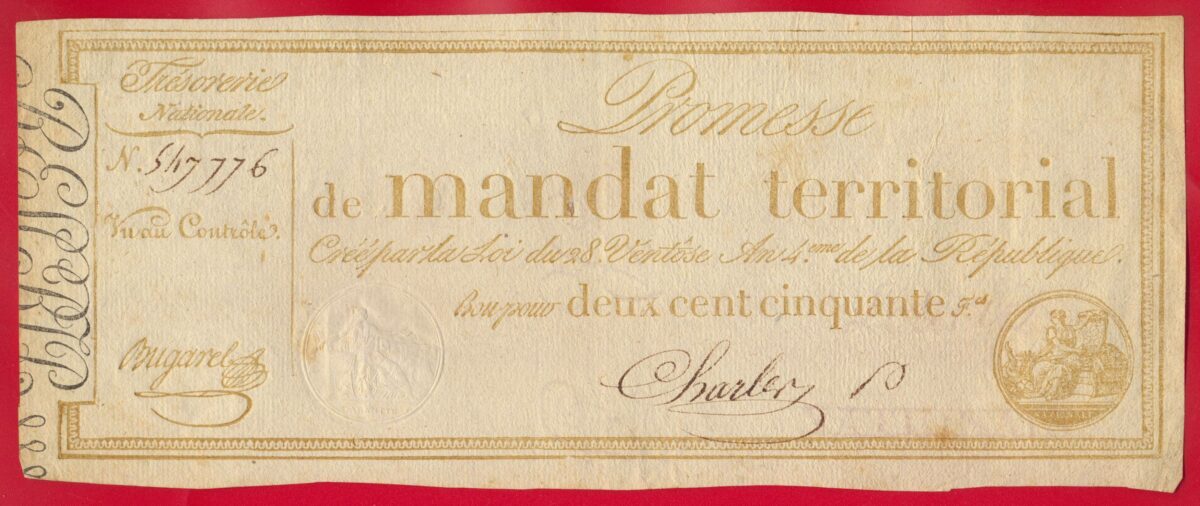 Trésorerie
Nationale.
N. 547776
Vu au Contrôle.
Bugarel
Promesse
de mandat territorial
Créé par la Loi du 28. Ventôse An 4.eme de la République.
Bon pour deux cent cinquante F.cs